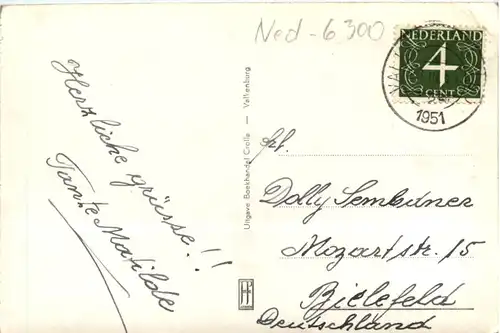 Ned-6300
NEDERLAND
4
CENT
VAL
1951
Herzliche grüsse!!
Tante Matilde
Uitgave Boekhandel Crolla — Valkenburg
Frl.
Dolly Sembdner
Mozartstr. 15
Bielefeld
Deutschland